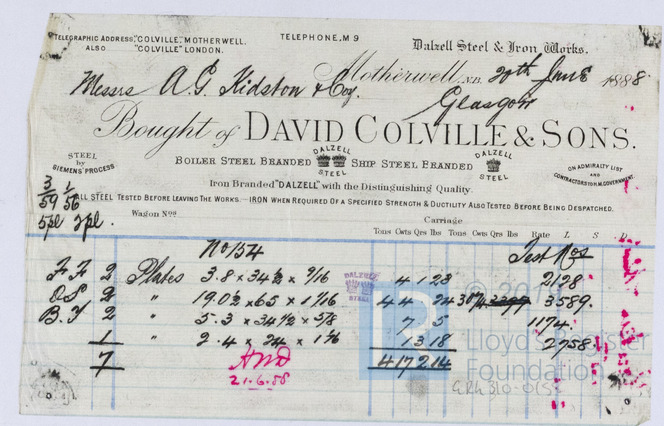 TELEGRAPHIC ADDRESS, "COLVILLE," MOTHERWELL.
ALSO "COLVILLE" LONDON.
TELEPHONE, M 9
Dalzell Steel & Iron Works.
Motherwell, N.B. 20th June 1888.
Messrs A. G. Kidston & Coy. Glasgow
Bought of DAVID COLVILLE & SONS.
STEEL by SIEMENS' PROCESS
BOILER STEEL BRANDED DALZELL STEEL SHIP STEEL BRANDED DALZELL STEEL
ON ADMIRALTY LIST AND CONTRACTORS FOR H.M. GOVERNMENT.
Iron Branded "DALZELL" with the Distinguishing Quality.
ALL STEEL TESTED BEFORE LEAVING THE WORKS.—IRON WHEN REQUIRED OF A SPECIFIED STRENGTH & DUCTILITY ALSO TESTED BEFORE BEING DESPATCHED.
3/59 1/56
5pl 2pl.
Wagon Nos.
Carriage
Tons Cwts Qrs lbs Tons Cwts Qrs lbs Rate L S D
No 154 Test Nos
2 Plates 3.8 x 34½ x 4 1 23 2128
2 " 19.0½ x 65 x 4 4 24 3589.
2 " 5.3 x 34½ x 5/8 7 5 1174.
1 " 2.4 x 24 x 13 18 2758.
7 4 17 2 14
21.6.88
DALZELL STEEL
© 20
Lloyd's Register
Foundation